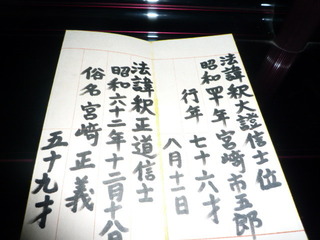 法諱釈大證信士位
昭和四年宮﨑市五郎
行年七十六才
八月十一日
法諱釈正道信士
昭和六十二年十二月十八日
俗名宮﨑正義
五十九才